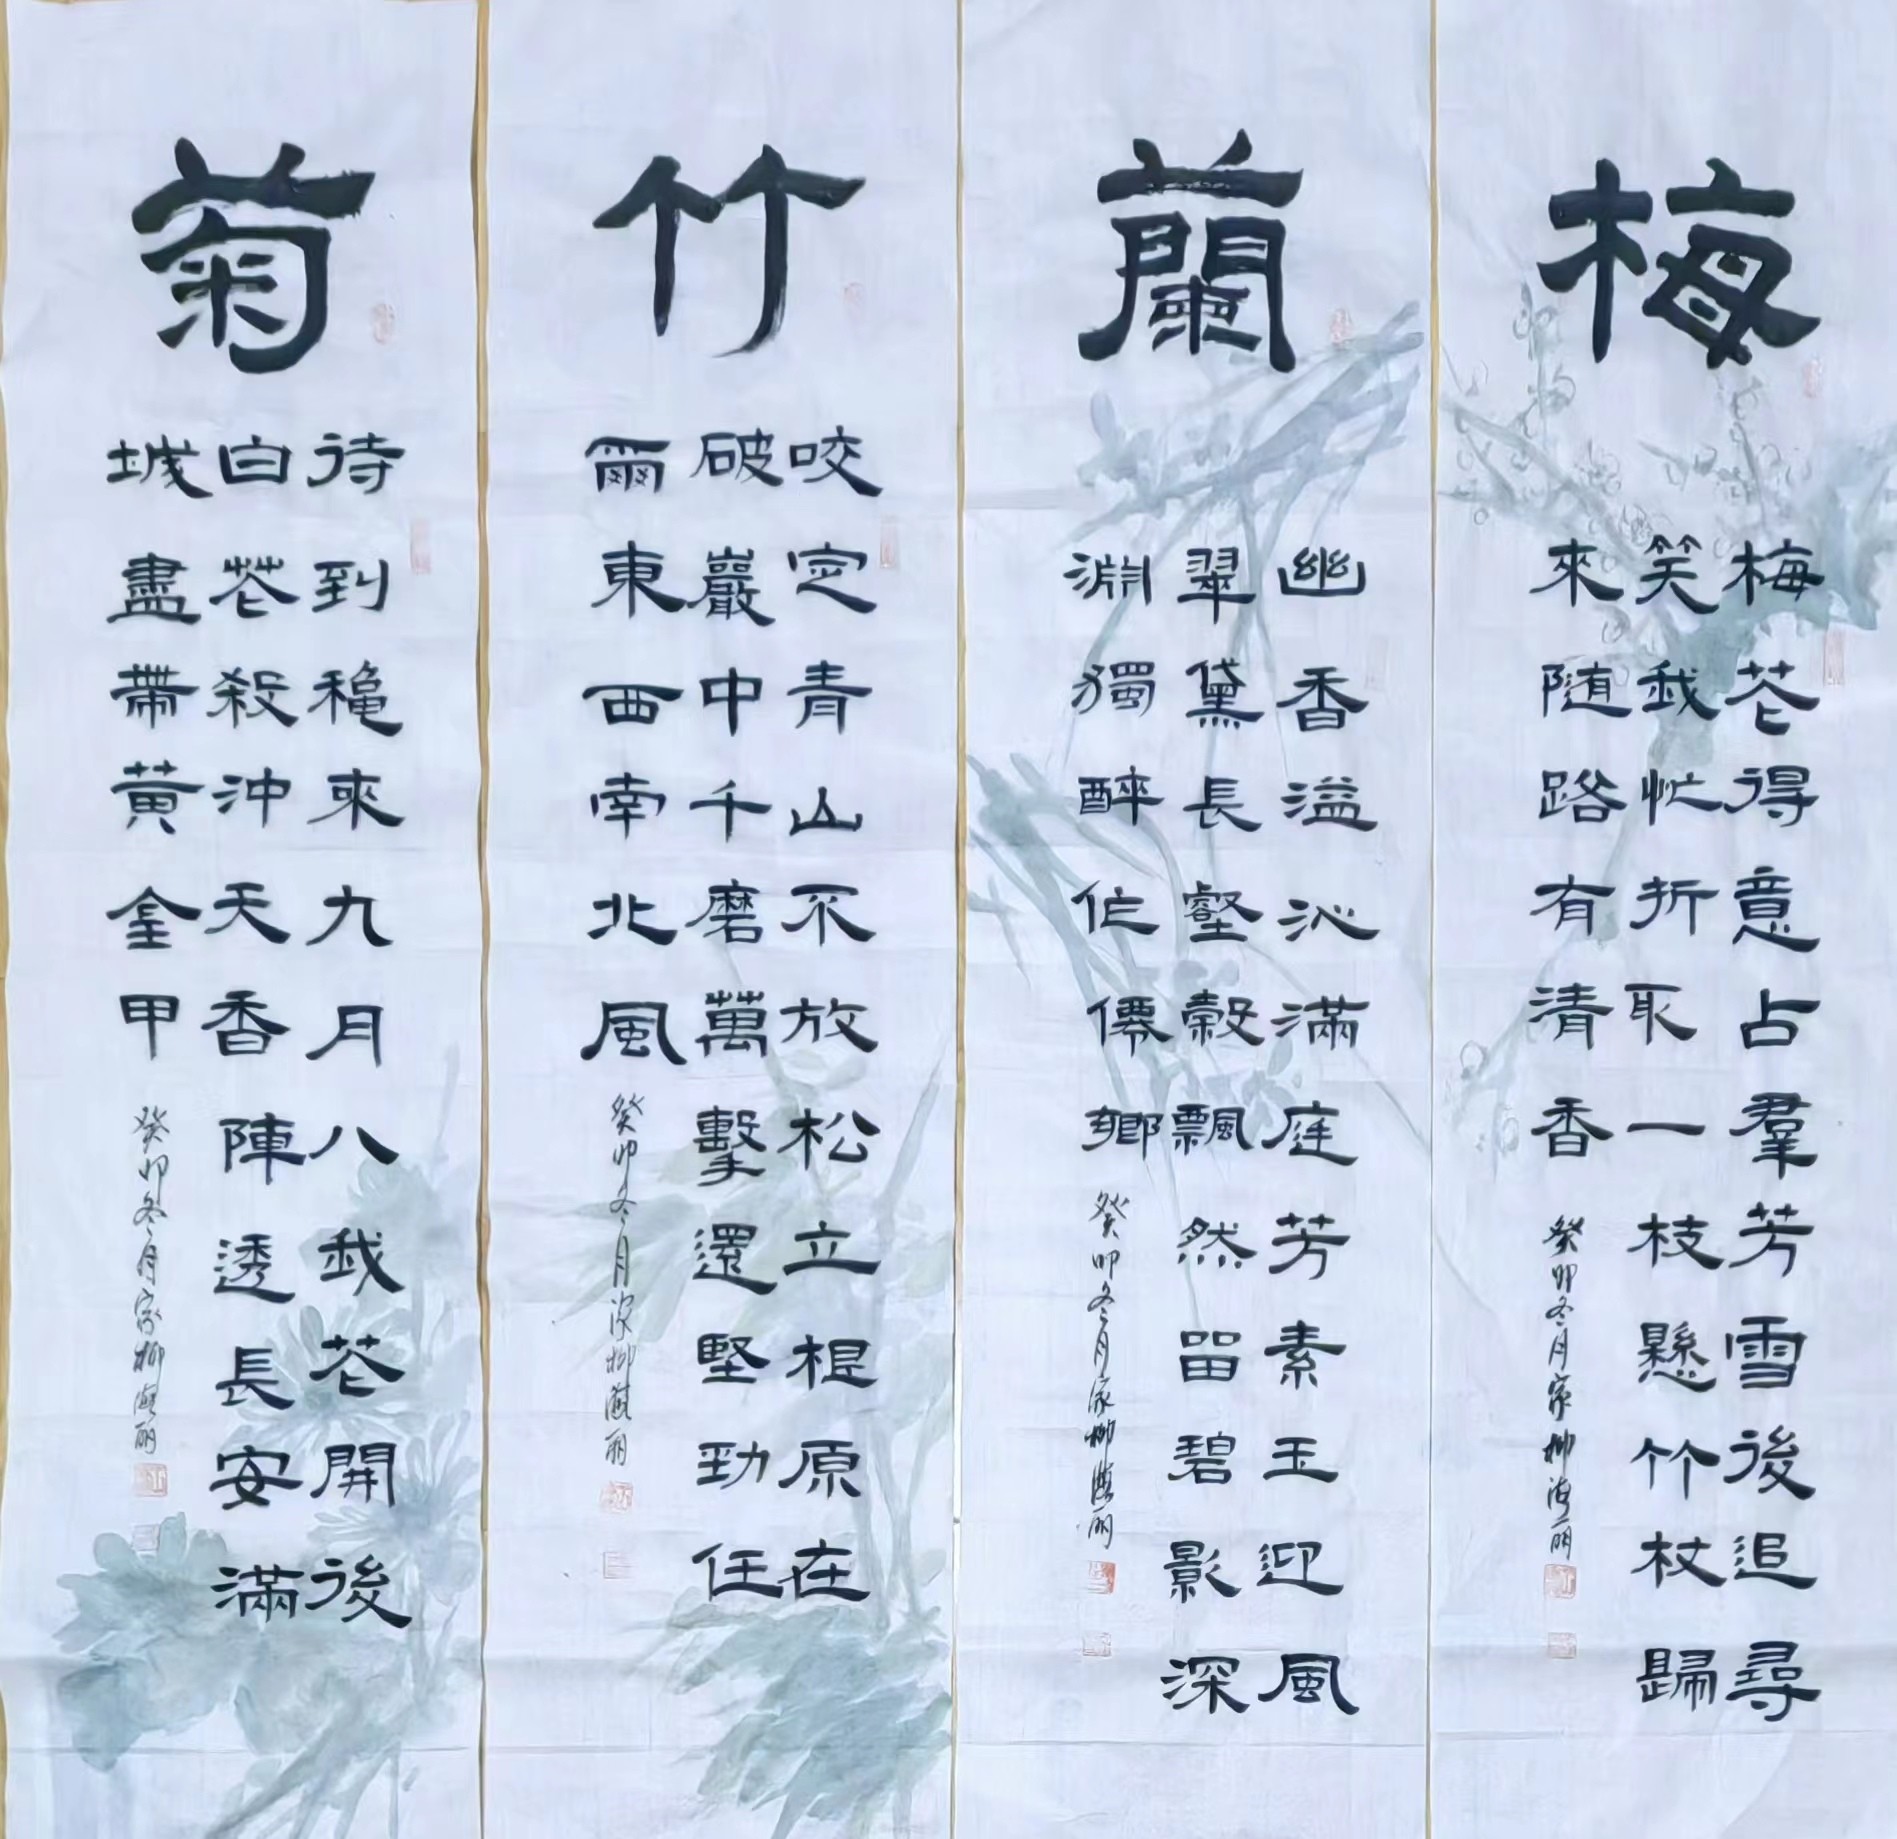 梅
梅花得意占羣芳雪後追尋
笑我忙折取一枝懸竹杖歸
來隨路有清香
癸卯冬月
蘭
幽香溢沁滿庭芳素玉迎風
翠黛長壑穀飄然留碧影深
淵獨醉作僊鄉
癸卯冬月
竹
咬定青山不放松立根原在
破巖中千磨萬擊還堅勁任
爾東西南北風
癸卯冬月
菊
待到穐來九月八我花開後
白花殺沖天香陣透長安滿
城盡帶黃金甲
癸卯冬月